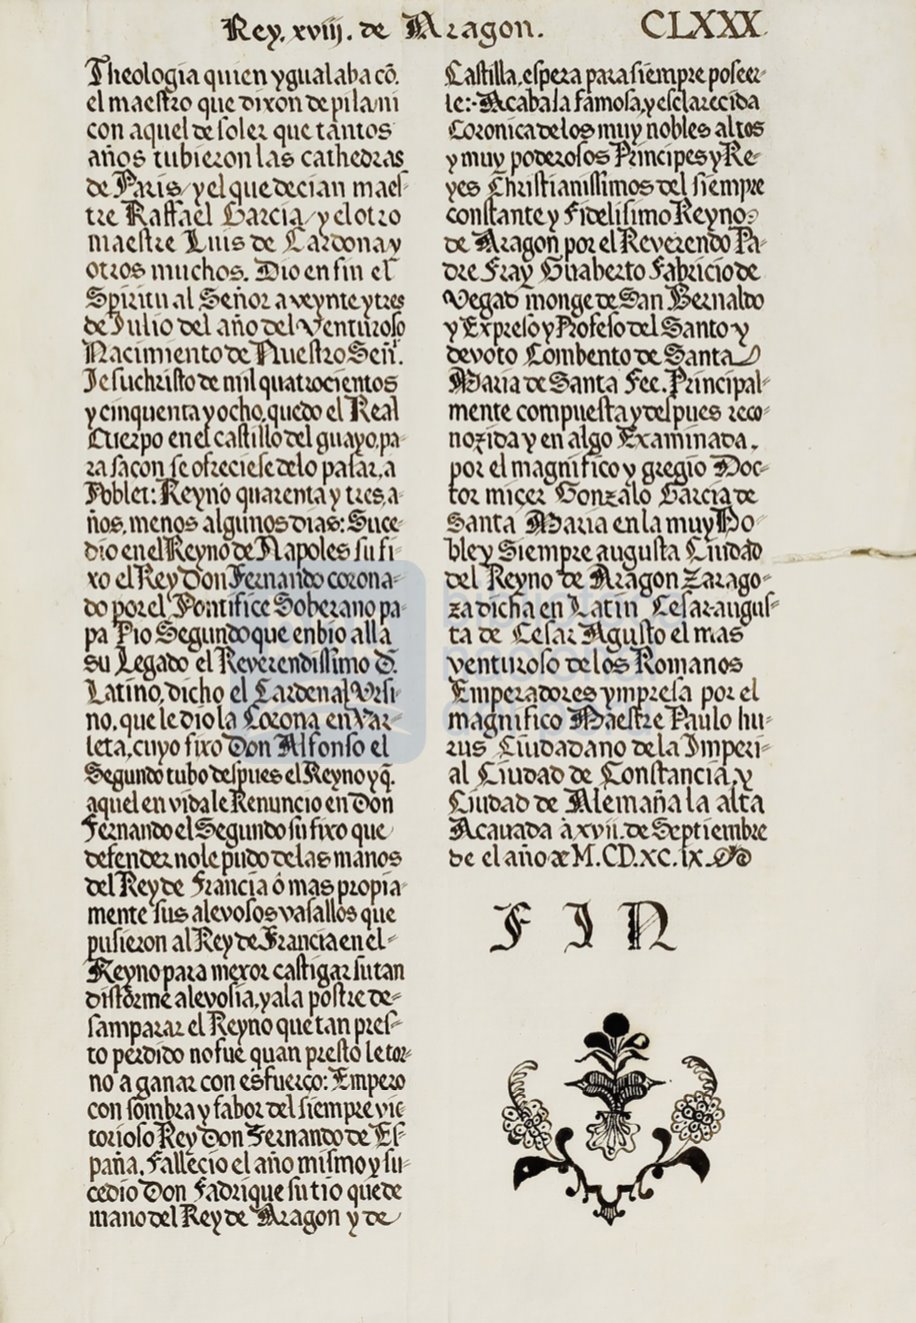 Rey. xviij. de Aragon. CLXXX.
Theologia quien ygualaba cõ.
el maestro que dixon de pila, ni
con aquel de soler que tantos
años tubieron las cathedras
de Paris, y el que decian maes-
tre Raffael Garcia, y el otro
maestre Luis de Cardona y
otros muchos. Dio en fin el
Spiritu al Señor a veynte y tres
de Julio del año del Venturoso
Nacimiento de Nuestro Señ.
Jesuchristo de mil quatrocientos
y cinquenta y ocho, quedo el Real
Cuerpo en el castillo del guayo, pa-
ra sacon se ofreciese de lo pasar, a
Poblet: Reyno quarenta y tres, a-
ños, menos algunos dias: Suce-
dio en el Reyno de Napoles su fi-
xo el Rey Don Fernando corona-
do por el Pontifice Soberano pa-
pa Pio Segundo que enbio alla
su Legado el Reverendissimo D.
Latino, dicho el Cardenal Vrsi-
no, que le dio la Corona en Var-
leta, cuyo fixo Don Alfonso el
Segundo tubo despues el Reyno y q̃.
aquel en vida le Renuncio en Don
Fernando el Segundo su fixo que
defender no le pudo de las manos
del Rey de Francia ô mas propia-
mente sus alevosos vasallos que
pusieron al Rey de Francia en el-
Reyno para mexor castigar su tan
disforme alevosia, y a la postre de-
samparar el Reyno que tan pres-
to perdido no fue quan presto le tor-
no a ganar con esfuerço: Empero
con sombra y fabor del siempre vic
torioso Rey Don Fernando de Es-
paña. Fallecio el año mismo y su-
cedio Don Fadrique su tio que de
mano del Rey de Aragon y de
Castilla, espera para siempre poseer-
le:- Acaba la famosa, y esclarecida
Coronica de los muy nobles altos
y muy poderosos Principes y Re-
yes Christianissimos del siempre
constante y Fidelisimo Reyno
de Aragon por el Reverendo Pa-
dre Fray Guaberto Fabricio de
Vegad monge de San Bernaldo
y Expreso y Profeso del Santo y
devoto Combento de Santa
Maria de Santa Fee. Principal-
mente compuesta y despues reco-
nozida y en algo Examinada.
por el magnifico y gregio Doc-
tor micer Gonzalo Garcia de
Santa Maria en la muy No-
ble y Siempre augusta Ciudad
del Reyno de Aragon Zarago-
za dicha en Latin Cesar-augus-
ta de Cesar Agusto el mas
venturoso de los Romanos
Emperadores ympresa por el
magnifico Maestre Paulo hu-
rus Ciudadano de la Imperi-
al Ciudad de Constancia, y
Ciudad de Alemaña la alta
Acavada à xvii. de Septiembre
de el año de M.CD.XC.ix.
FIN
biblioteca
nacional
del perú